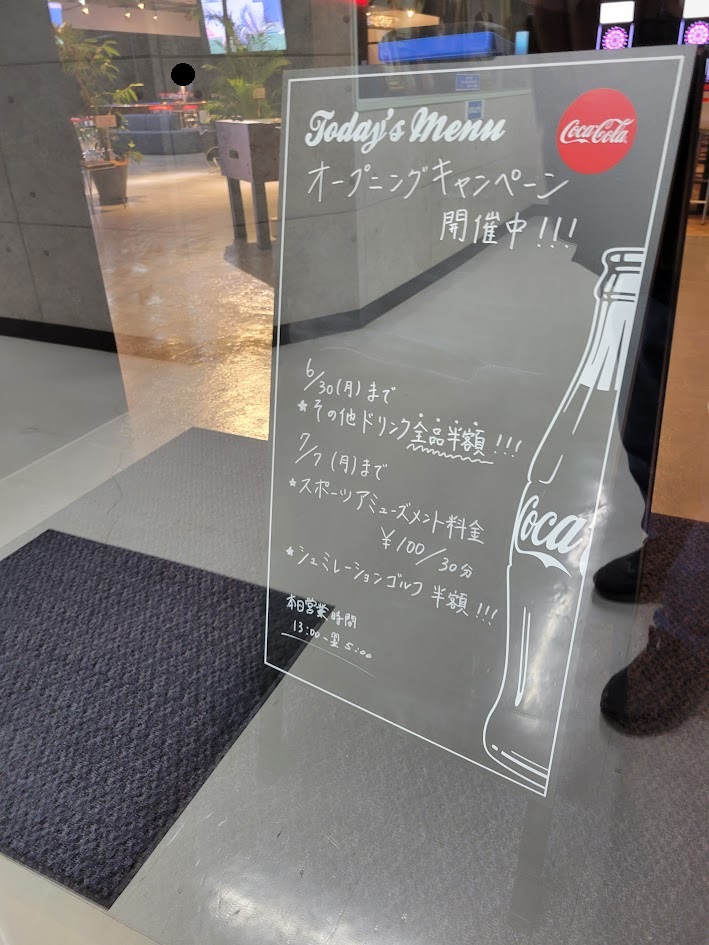 Today's Menu
Coca-Cola
オープニングキャンペーン
開催中!!!
6/30(月)まで
★その他ドリンク全品半額!!!
7/7(月)まで
★スポーツアミューズメント料金
¥100/30分
★シュミレーションゴルフ 半額!!!
本日営業時間
13:00-翌5:00
Coca